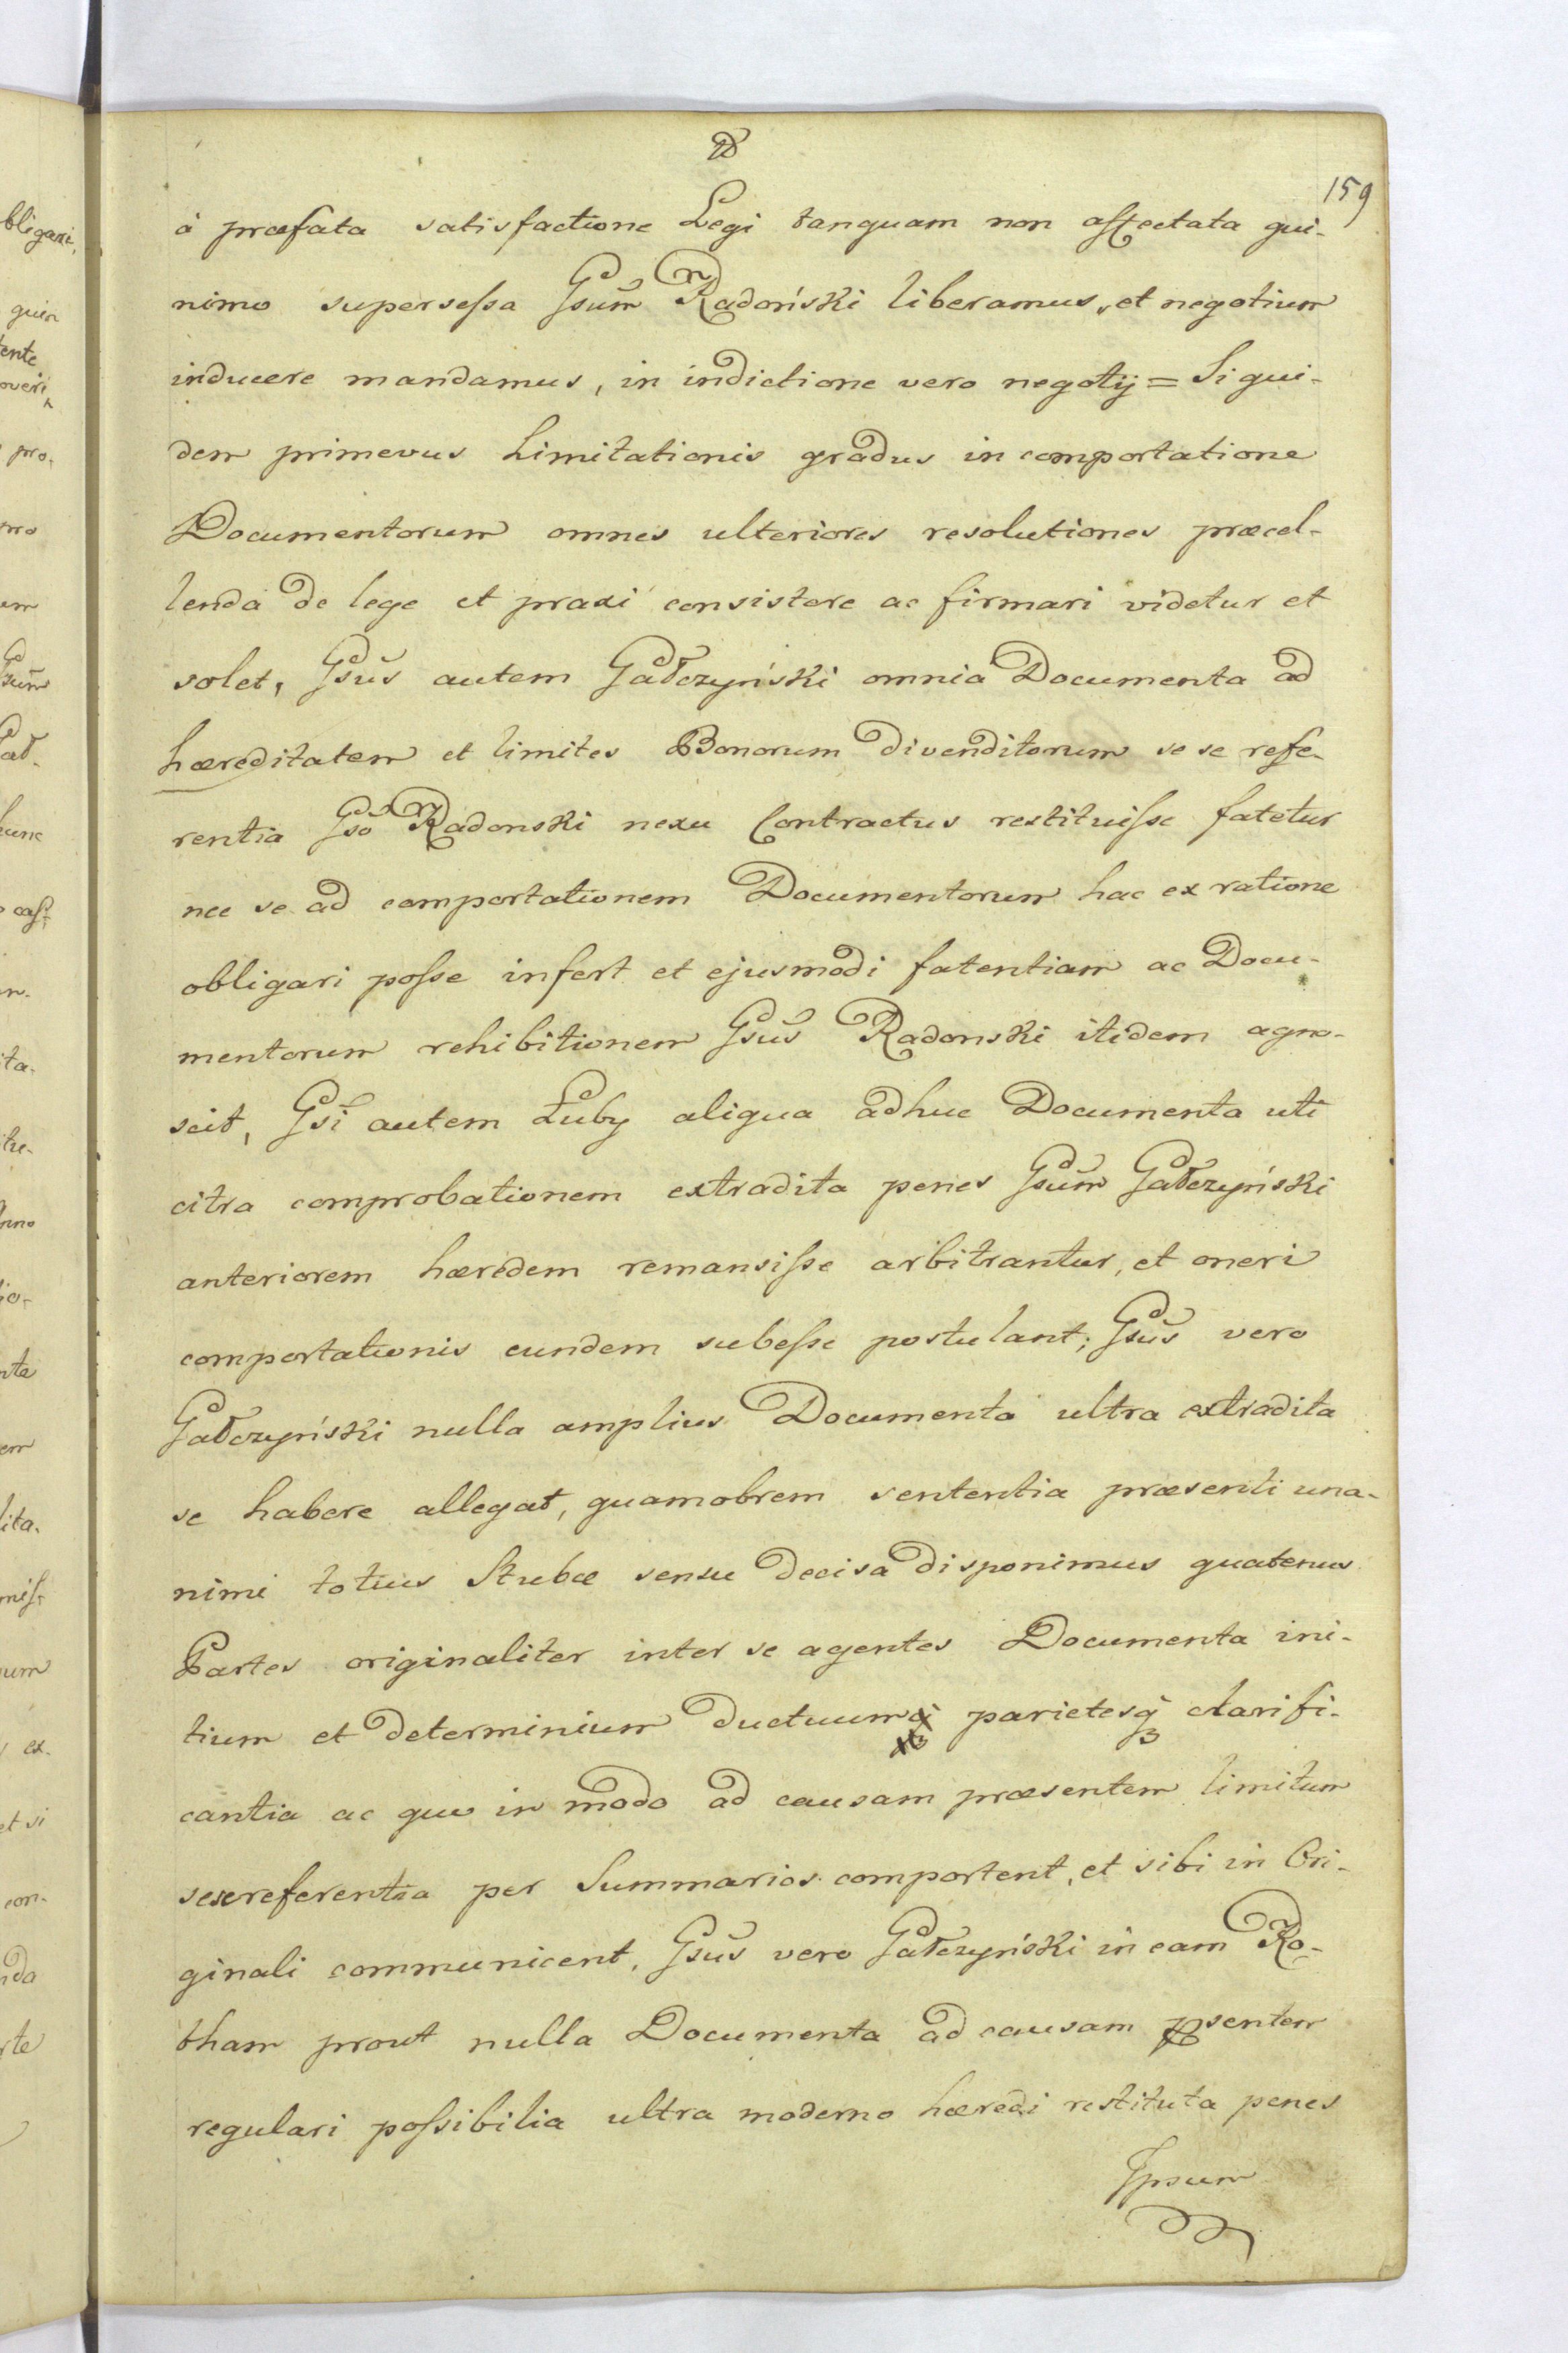 159
à præfata satisfactione Legi tanquam non affectata qui-
nimo supersessa Gsum Radoński liberamus, et negotium
inducere mandamus, in indictione vero negotij = Siqui-
dem primevus Limitationis gradus in comportatione
Documentorum omnes ulteriores resolutiones præcel-
lenda de lege et praxi consistere ac firmari videtur et
solet, Gsus autem Gałczyński omnia Documenta ad
hæreditatem et limites Bonorum divenditorum se se refe-
rentia Gso Radonski nexu Contractus restituisse fatetur
nec se ad comportationem Documentorum hac ex ratione
obligari posse infert et ejusmodi fatentiam ac Docu-
mentorum rehibitionem Gsus Radonski itidem agno-
scit, Gsi autem Łuby aliqua adhuc Documenta uti
citra comprobationem extradita penes Gsum Gałczyński
anteriorem hæredem remansisse arbitrantur, et oneri
comportationis eundem subesse postulant; Gsus vero
Gałczyński nulla amplius Documenta ultra extradita
se habere allegat, quamobrem sententia præsenti una-
nimi totius Stubæ sensu decisa disponimus quatenus
Partes originaliter inter se agentes Documenta ini-
tium et determinium ductuum parietesq3 clarifi-
cantia ac quo in modo ad causam præsentem limitum
sesereferentia per Summarios comportent, et sibi in Ori-
ginali communicent, Gsus vero Gałczyński in eam Ro-
tham prout nulla Documenta ad causam psentem
regulari possibilia ultra moderno hæredi restituta penes
Ipsum